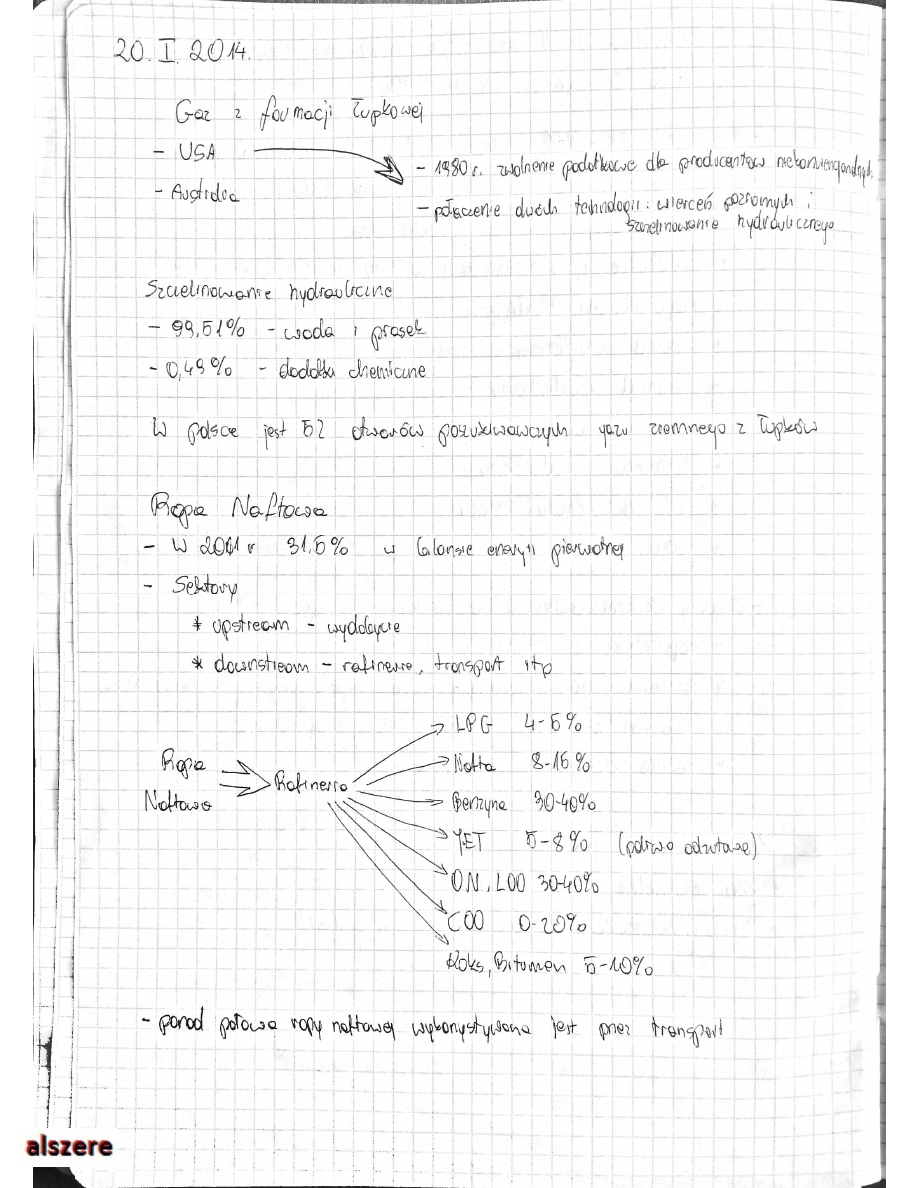 20. I. 2014.
Gaz z formacji łupkowej
- USA
- Australia
- 1980 r. zwolnienie podatkowe dla producentów niekonwencjonalnych
- połączenie dwóch technologii: wierceń poziomych i
szczelinowanie hydraulicznego
Szczelinowanie hydrauliczne
- 99,51% - woda i piasek
- 0,49% - dodatki chemiczne
W polsce jest 52 otworów poszukiwawczych gazu ziemnego z łupków
Ropa Naftowa
- W 2001 r 31,5% w bilansie energii pierwotnej
- Sektory
* upstream - wydobycie
* downstream - rafinerie, transport itp
Ropa
Naftowa
Rafineria
LPG 4-5%
Nafta 8-15%
Benzyna 30-40%
JET 5-8% (paliwo odrzutowe)
ON, LOO 30-40%
COO 0-20%
Koks, Bitumen 5-10%
- ponad połowa ropy naftowej wykorzystywana jest przez transport
alszere